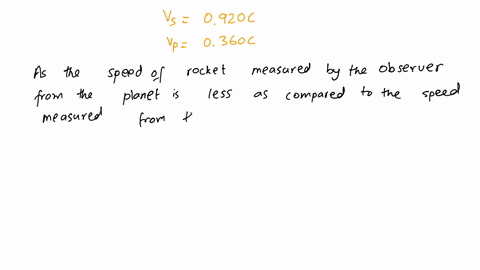 Vs = 0.920C
Vp = 0.360C
As the speed of rocket measured by the observer
from the planet is less as compared to the speed
measured from